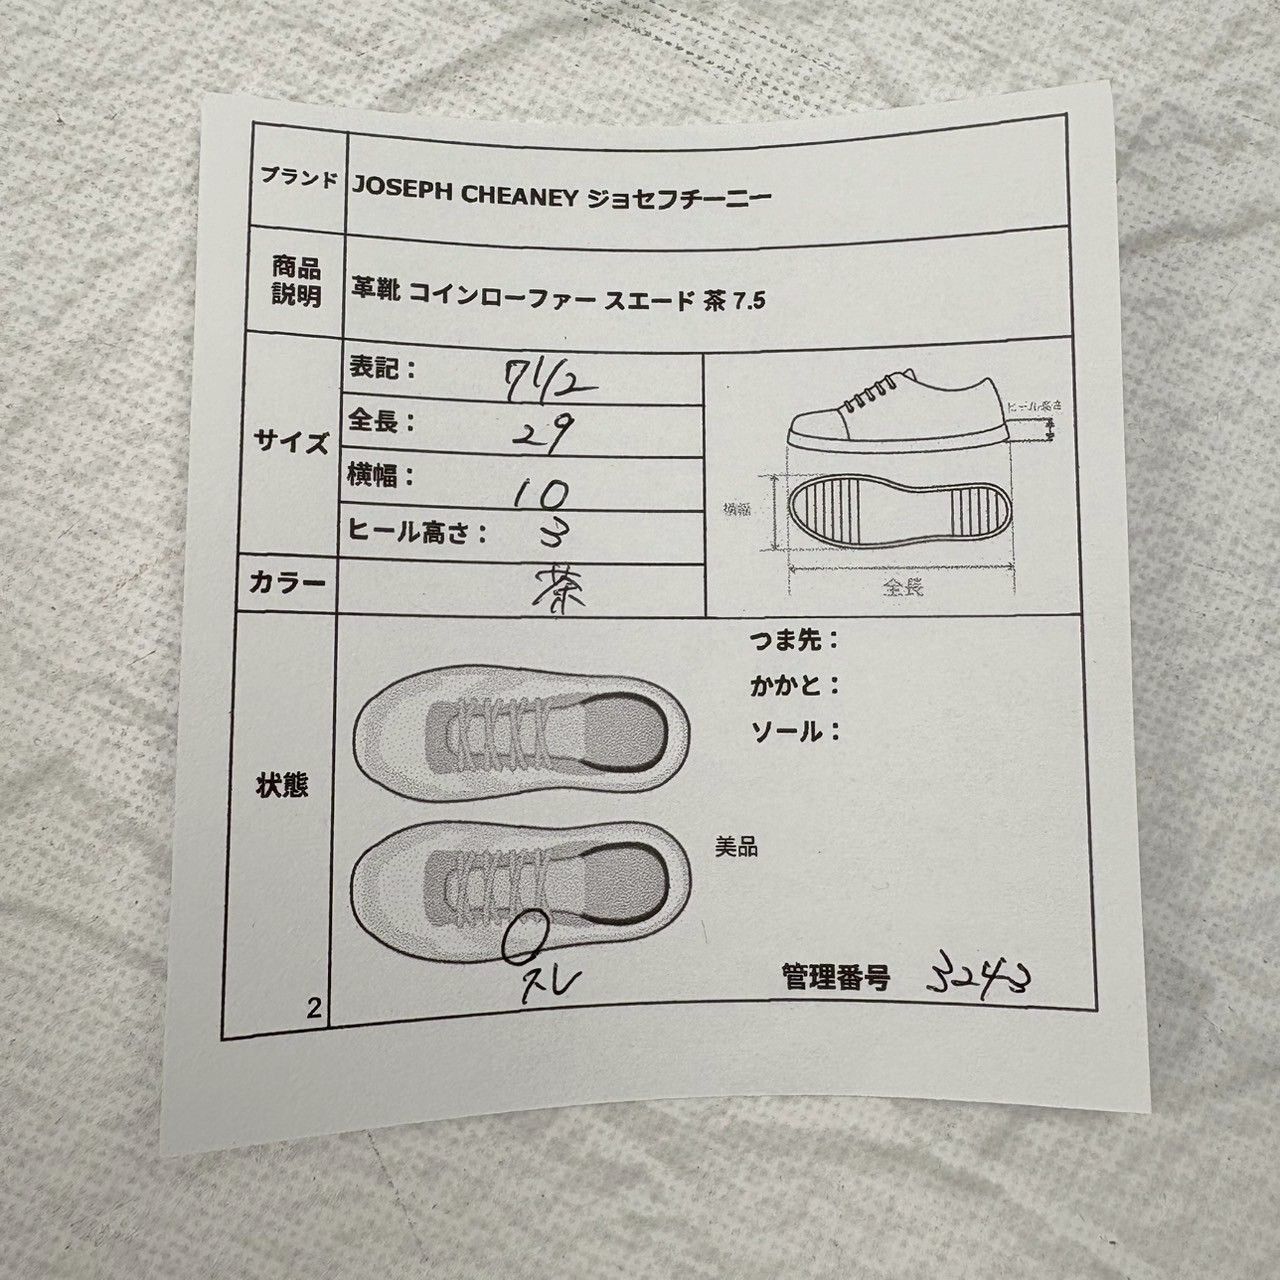 ブランド JOSEPH CHEANEY ジョセフチーニー
商品
説明
革靴 コインローファー スエード 茶 7.5
サイズ
表記： 7 1/2
全長： 29
横幅： 10
ヒール高さ： 3
ヒール高さ
横幅
全長
カラー 茶
状態
つま先：
かかと：
ソール：
美品
スレ
管理番号 3243
2